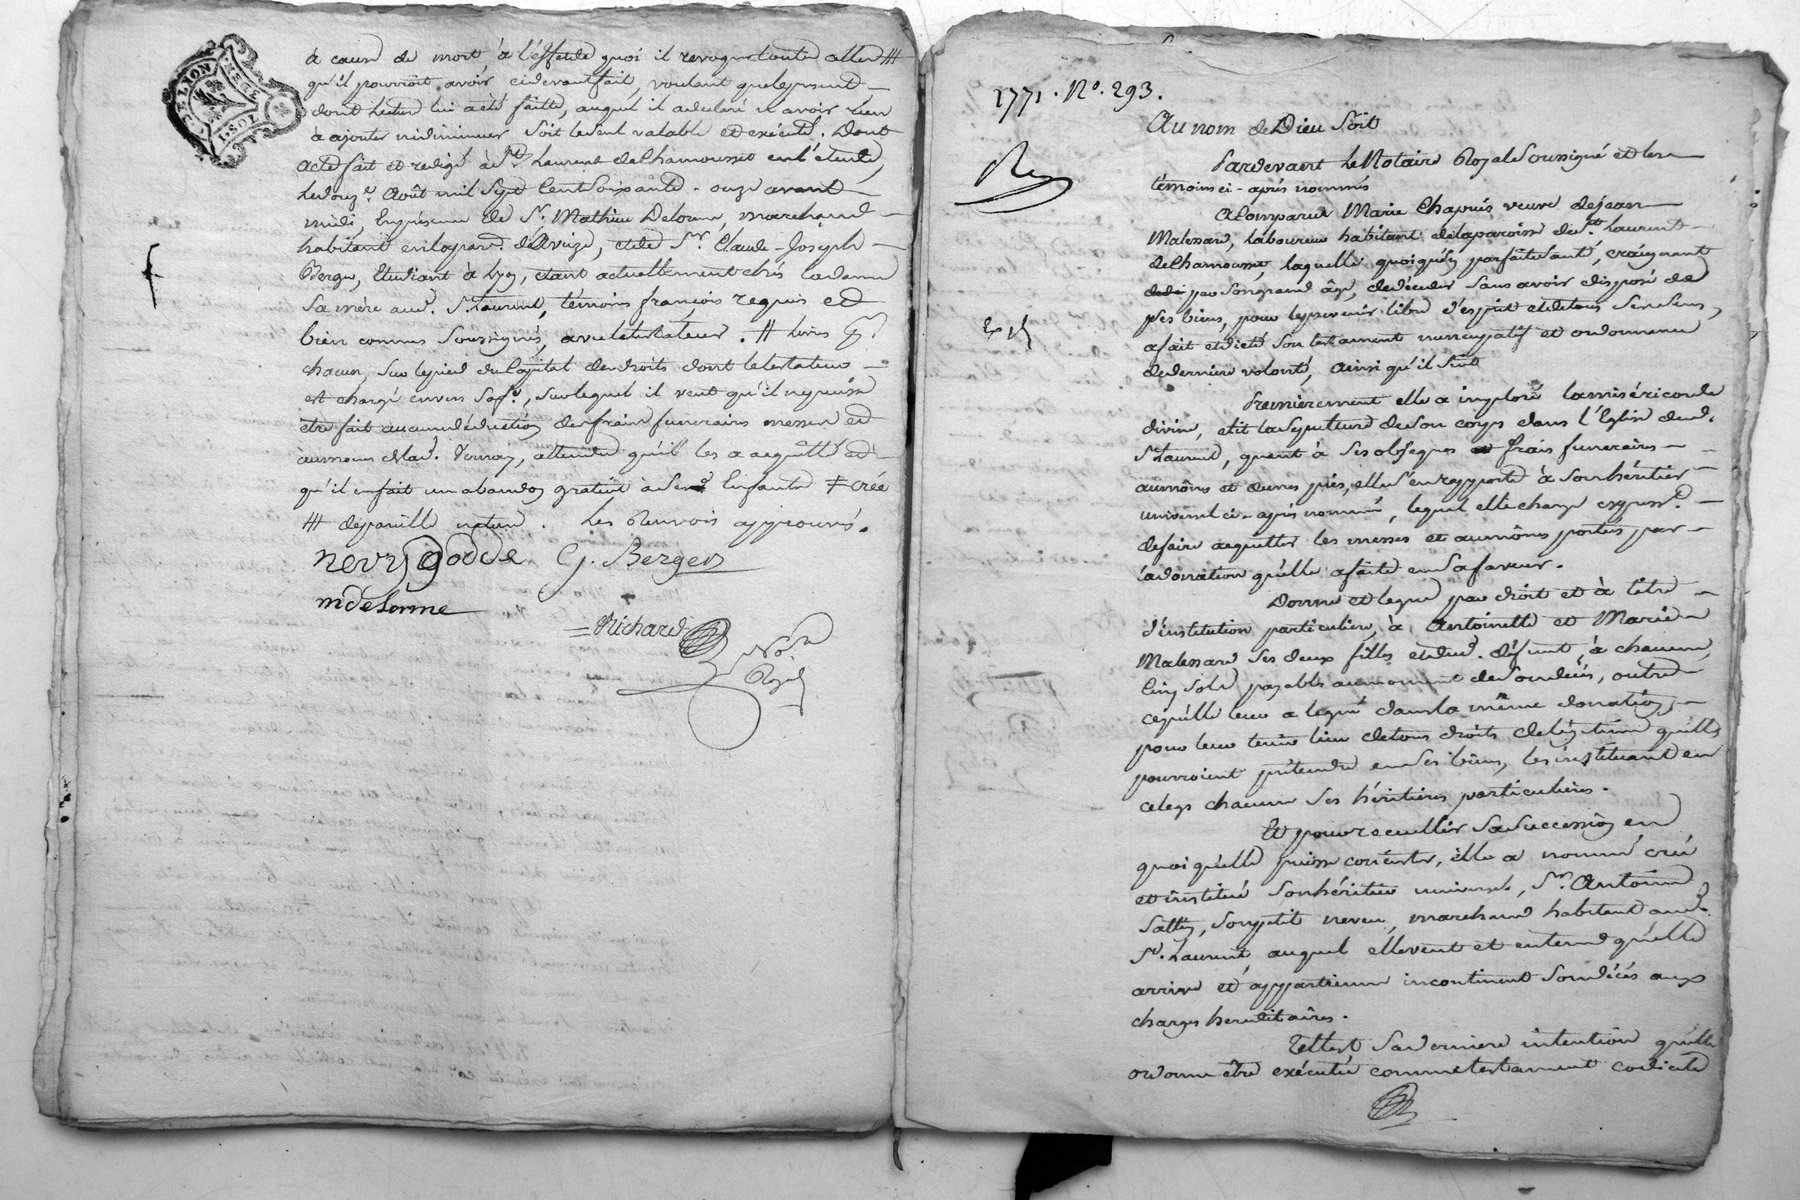 DE LYON
à cause de mort, à l'effet de quoi il revoque toute autre #
qu'il pourroit avoir cidevant fait, voulant que le present
dont lecture lui a eté faitte, auquel il a declaré n'avoir rien
à ajouter ni diminuer soit le seul valable et executé. Dont
acte fait et redigé à St Laurent de Chamousset en l'étude,
le douze. Août mil sept cent soixante-onze avant
midi, en présence de Sr. Mathieu Delorme, marchand
habitant en la par. d'Aveize, et de Sr. Claude-Joseph
Berger, Etudiant à Lyon, etant actuellement chés la dame
sa mère aud. St. Laurent, témoins françois requis et
bien connus soussignés, avec le testateur. # livres
chacun, sur le pied du Capital des droits dont le testateur
est chargé envers , sur lequel il veut qu'il ne puisse
être fait aucune déduction des frais funeraires messes et
aumones , attendu qu'il les a acquitté et
qu'il en fait un abandon gratuit à ses Enfants # créé
# depouille . Les Renvois approuvés.
C. J. Berger
mdelorme
Richard
No.re
Royal
1771. No. 293.
Au nom de Dieu Soit
Pardevant le Notaire Royal Soussigné et les
témoins ci-après nommés
A Comparu Marie Chapuis veuve de jean
Malessard, laboureur habitant de la paroisse de St. Laurent
de Chamousset, laquelle quoiqu'en parfaite santé, craignant
par son grand âge, de décéder sans avoir disposé de
ses biens, pour le prevenir libre d'esprit et de tous ses sens,
a fait et dicté son testament nuncupatif et ordonnance
de derniere volonté, ainsi qu'il suit
Premièrement elle a imploré la miséricorde
divine, elit la sepulture de son corps dans l'Eglise dud.
St Laurent, quant à ses obseques et frais funeraires
aumônes et œuvres pies, elle s'en rapporte à son héritier
universel ci-après nommé, lequel elle charge express.
de faire acquitter les messes et aumônes portés par
la donation qu'elle a faite en sa faveur.
Donne et legue par droit et à titre
d'institution particuliere, à Antoinette et Marie
Malessard ses deux filles et dud. défunt, à chacune,
cinq sols payables au moment de son decès, outre
ce qu'elle leur a legué dans la même donation,
pour leur tenir lieu de tous droits de legitime qu'elles
pourroient prétendre en ses biens, les instituant en
ce legs chacune ses héritieres particulieres.
Et pour recueillir sa succession en
quoi qu'elle puisse consister, elle a nommé créé
et institué son héritier universel, Sr. Antoine
, son petit neveu, marchand habitant aud.
St. Laurent, auquel elle veut et entend qu'elle
arrive et appartienne incontinent son décès aux
charges hereditaires.
Telle est sa derniere intention qu'elle
ordonne être exécutée comme testament codicile